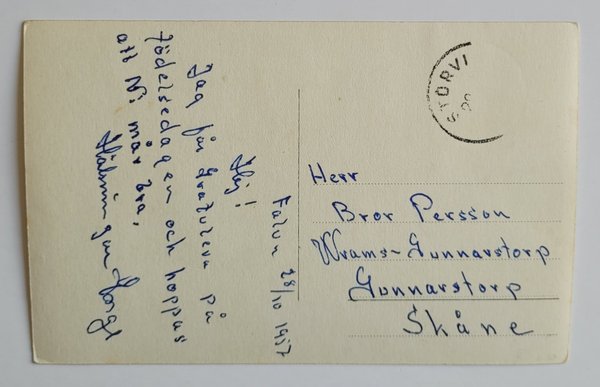 Falun 28/10 1957
Hej!
Jag får Gratulera på
födelsedagen och hoppas
att Ni mår bra,
Hälsningar
STORVI
Herr
Bror Persson
Wrams-Gunnarstorp
Gunnarstorp
Skåne